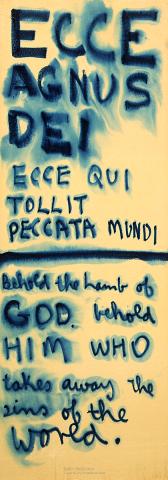 ECCE
AGNUS
DEI
ECCE QUI
TOLLIT
PECCATA MUNDI
Behold the Lamb of
GOD. behold
HIM WHO
takes away the
sins of the
World.